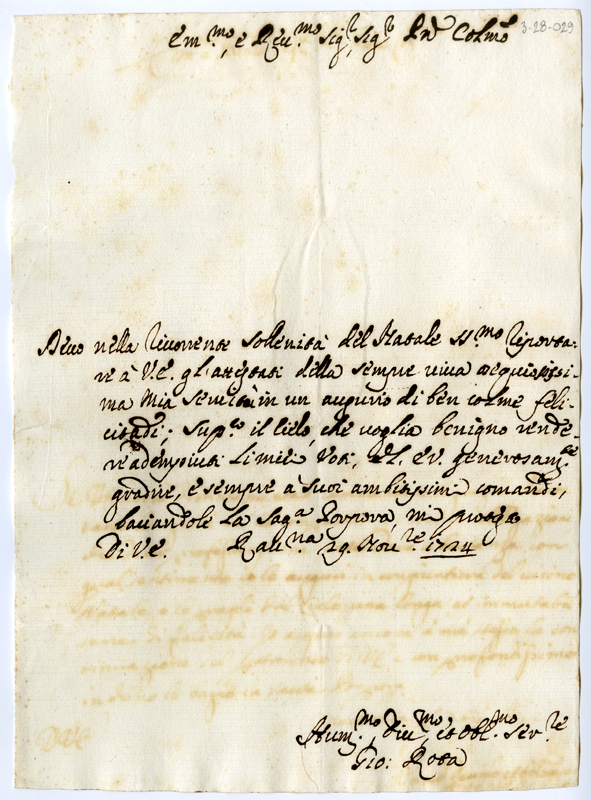 Em.mo, e Reu.mo Sig.r Sig.r Pnē Colmō
3-28-029
Deuo nella ricorrente sollenità del Natale SS.mo riporta-
re à V.E. gl'attestati della sempre viua
ma mia seruitù in un augurio di ben colme feli-
citadi; sup.co il Cielo, che voglia benigno rende-
re adempiuti li miei Voti, et E.V. generosam.te
gradire, e sempre à suoi ambitissimi comandi,
baciandole la Sag.a Porpora, mi
Di V.E. 29. Nou.re 1724
Hum.mo, Diu.mo, et Obl.mo Ser.re
Gio: Rota